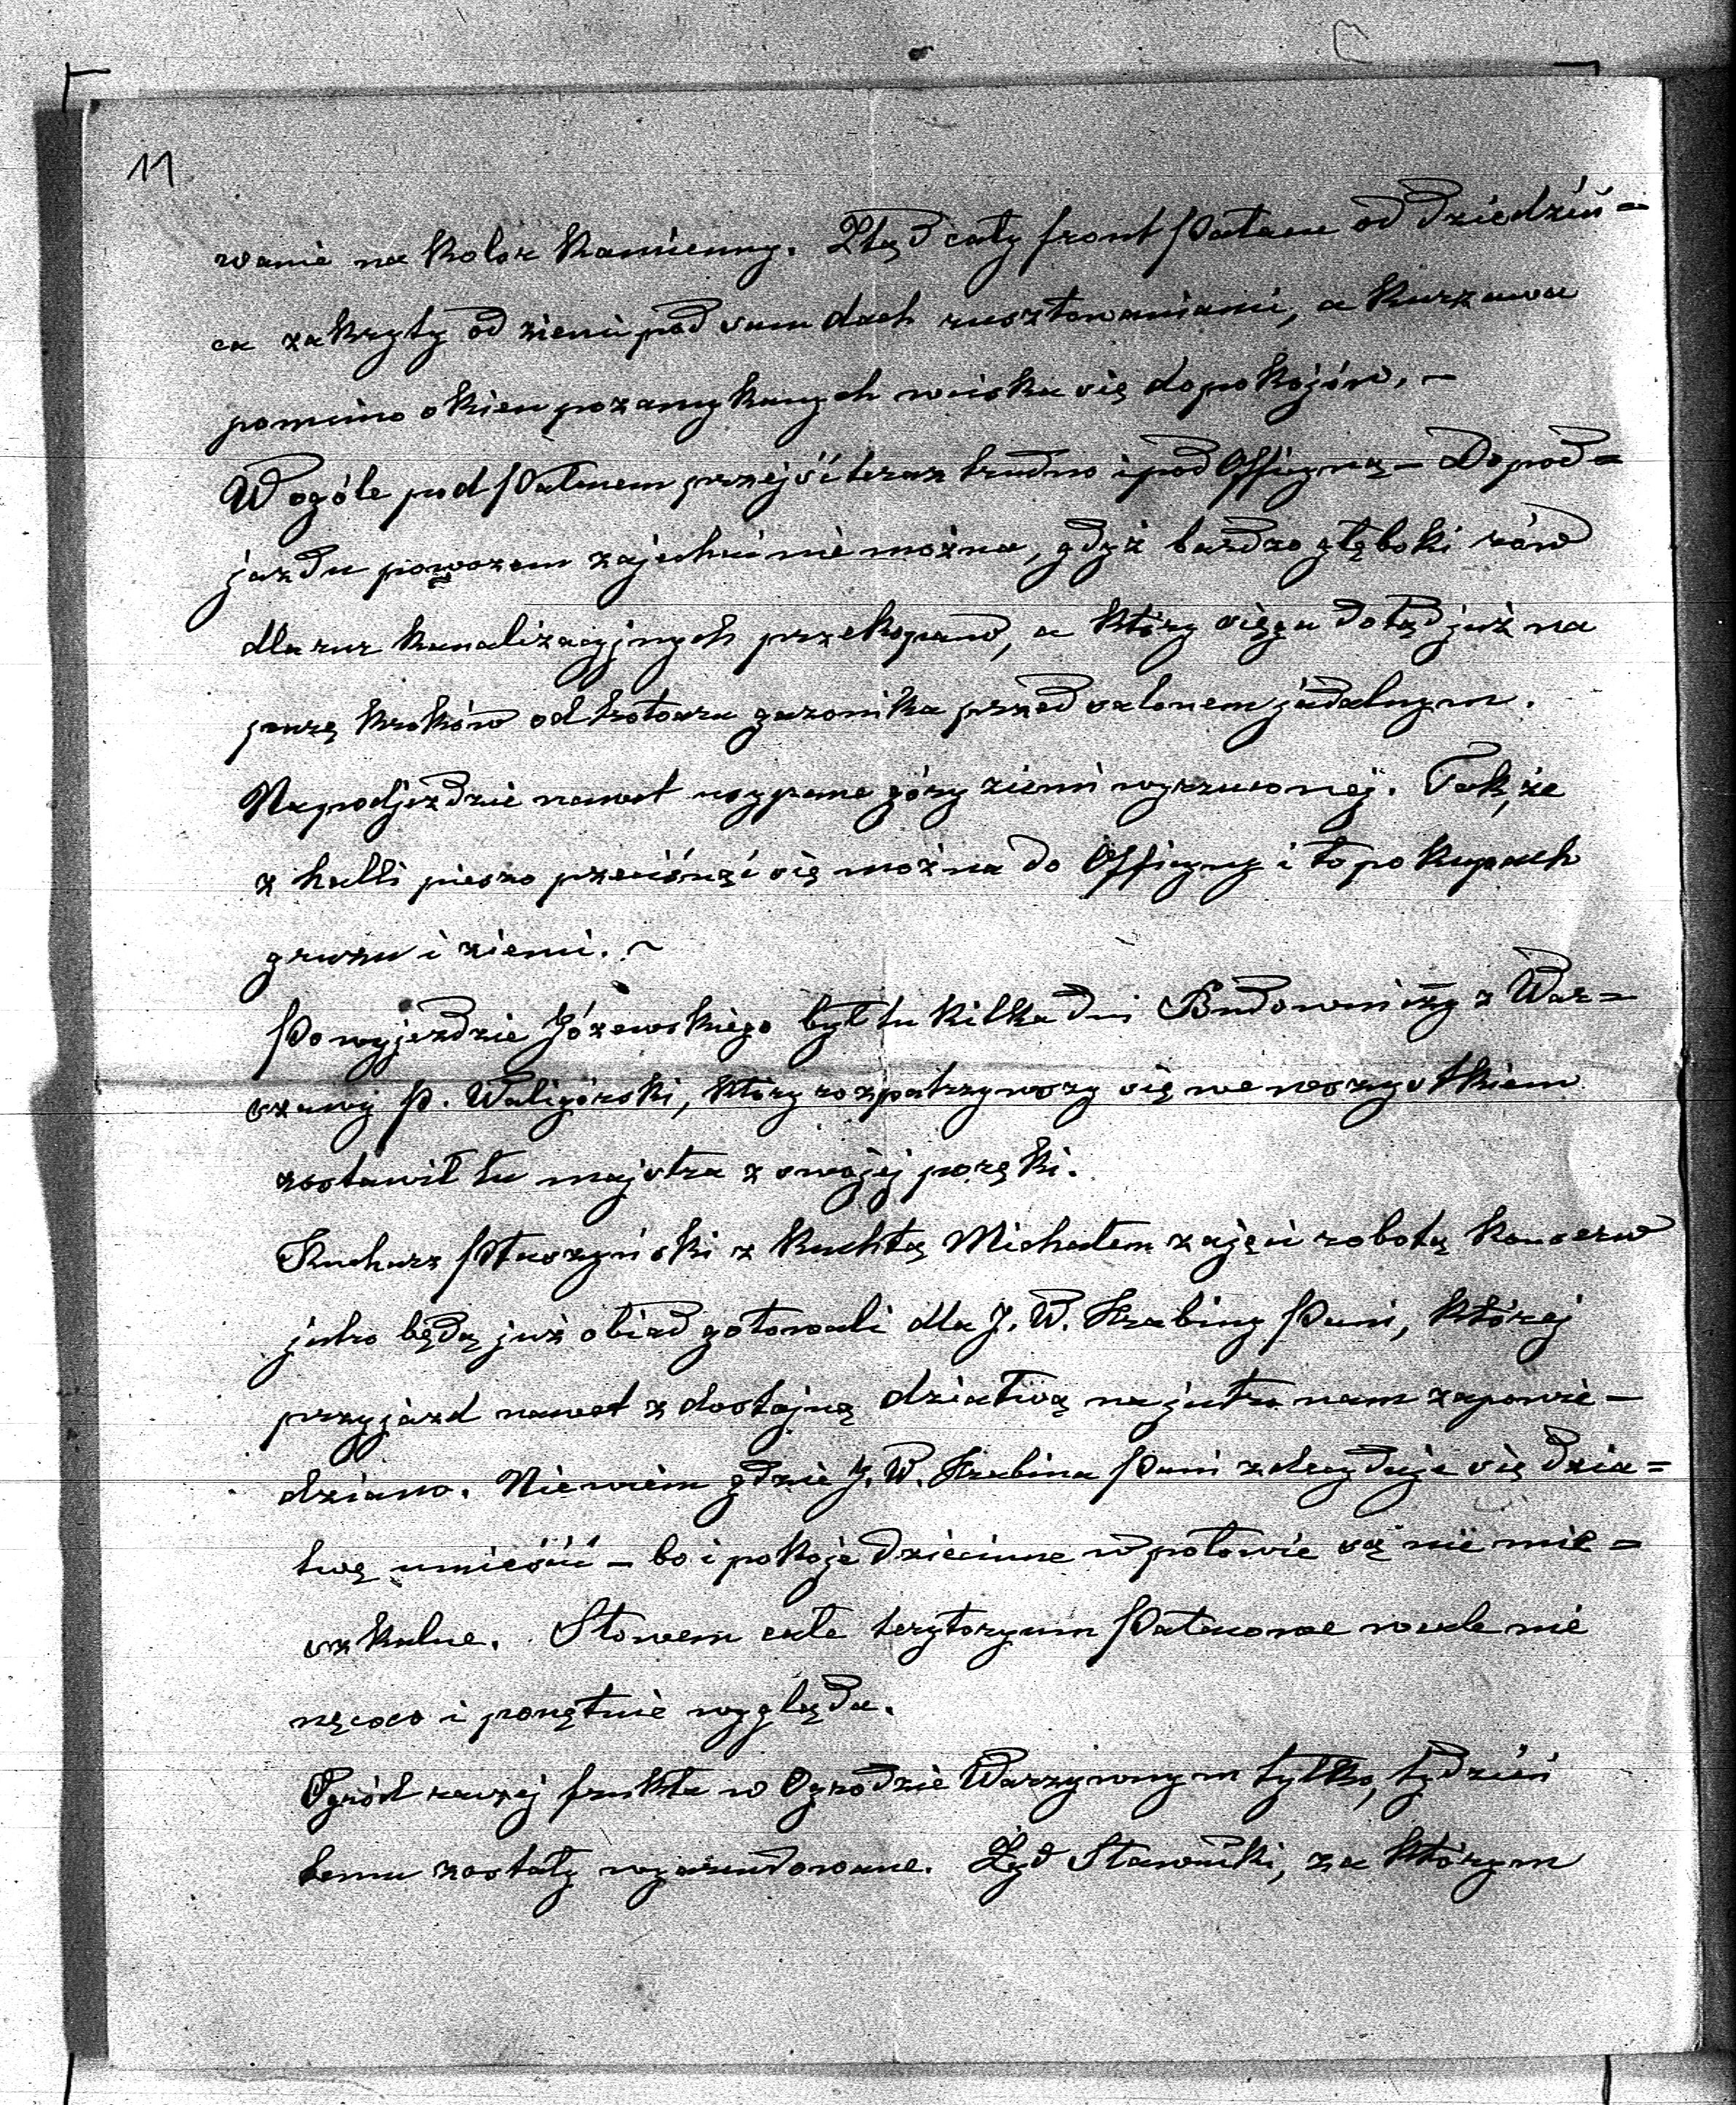 11
wanie na kolor kamienny. Ztąd cały front Pałacu od dziedziń=
ca zakryty od ziemi pod sam dach rusztowaniami, a kurzawa
pomimo okien pozamykanych wciska się do pokojów. –
W ogóle pod Pałacem przejść teraz trudno i pod Officyną – Do pod=
jazdu powozem zajechać nie można, gdyż bardzo głęboki rów
dla rur kanalizacyjnych przekopano, a który sięga dotąd już na
parę kroków od trotoaru gazonika przed salonem jadalnym.
Na podjeździe nawet usypane góry ziemi wyrzuconej. Tak, że
z halli pieszo przecisnąć się można do Officyny i to po kupach
gruzu i ziemi. ~
Po wyjeździe Józewskiego był tu kilka dni Budowniczy z War=
szawy P. Waligórski, który rozpatrzywszy się we wszystkiem
zostawił tu majstra z swojej poręki.
Kucharz Ptaszyński z kuchtą Michałem zajęci robotą konserw
jutro będą już obiad gotowali dla J. W. Hrabiny Pani, której
przyjazd nawet z dostojną dziatwą na jutro nam zapowie–
dziano. Nie wiem gdzie J. W. Hrabina Pani zdecyduje się dzia=
twę umieścić – bo i pokoje dziecinne w połowie są nie mie=
szkalne. Słowem całe terytoryum Pałacowe wcale nie
nęcąco i ponętnie wygląda.
Ogród raczej frukta w Ogrodzie Warzywnym tylko, tydzień
temu zostały wyarendowane. Żyd Sławucki, za którym